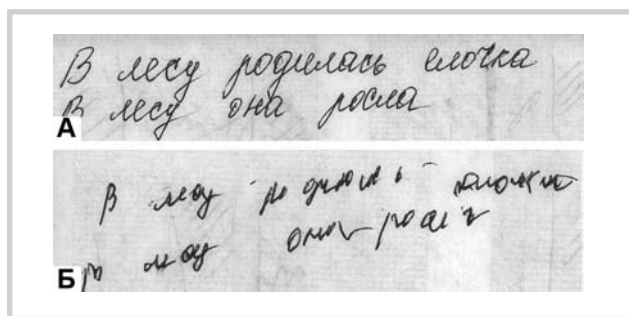 В лесу родилась елочка
В лесу она росла
А
В лесу родилась елочка
В лесу она росла
Б